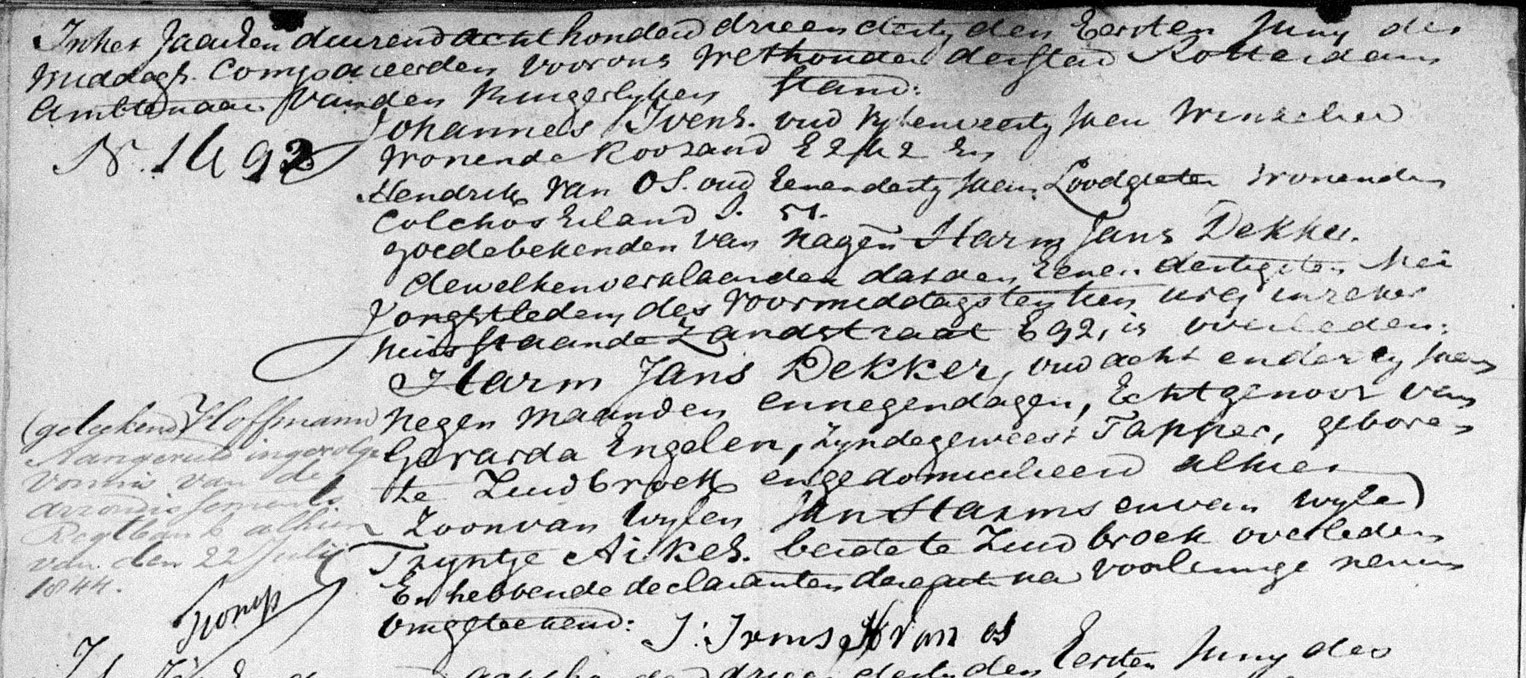 In het Jaar Een duuzend acht honderd drie en dertig den Eersten Juny des
Middags. Compareerden voor ons Wethouder der stad Rotterdam
Ambtenaar van den Burgerlyken Stand:
Johannes Ivens. oud Jaar Winkelier
N. 1492
Wonende Roozand E 242 En
Hendrik van Os. oud Eenendertig Jaar, Loodgieter Wonende
Colchos Eiland S. 51.
goede bekenden van nagen Harm Jans Dekker.
dewelken verklaarden dat den Eenen dertigsten Mei
Jongstleden, des Voormiddags ten tien ure, in zeker
huis staande Zandstraat E 92, is overleden:
Harm Jans Dekker, oud acht en dertig Jaar
negen maanden en negen dagen, Echtgenoot van
Gerarda Engelen, Zynde geweest Tapper, geboren
te Zuidbroek en gedomicilieerd alhier
Zoon van Wylen Jan Harms en van Wyle
Tryntje Aikes. beide te Zuidbroek overleden
En hebbende declaranten deze acte na voorlezinge nevens
ons geteekend: J: Ivens H van Os
(geteekend) Hoffmann
Aangevuld ingevolge
Vonnis van de
arrondissements
Regtbank alhier
van den 22 Julij
1844.
In het Jaar Een duuzend acht honderd drie en dertig den Eersten Juny des